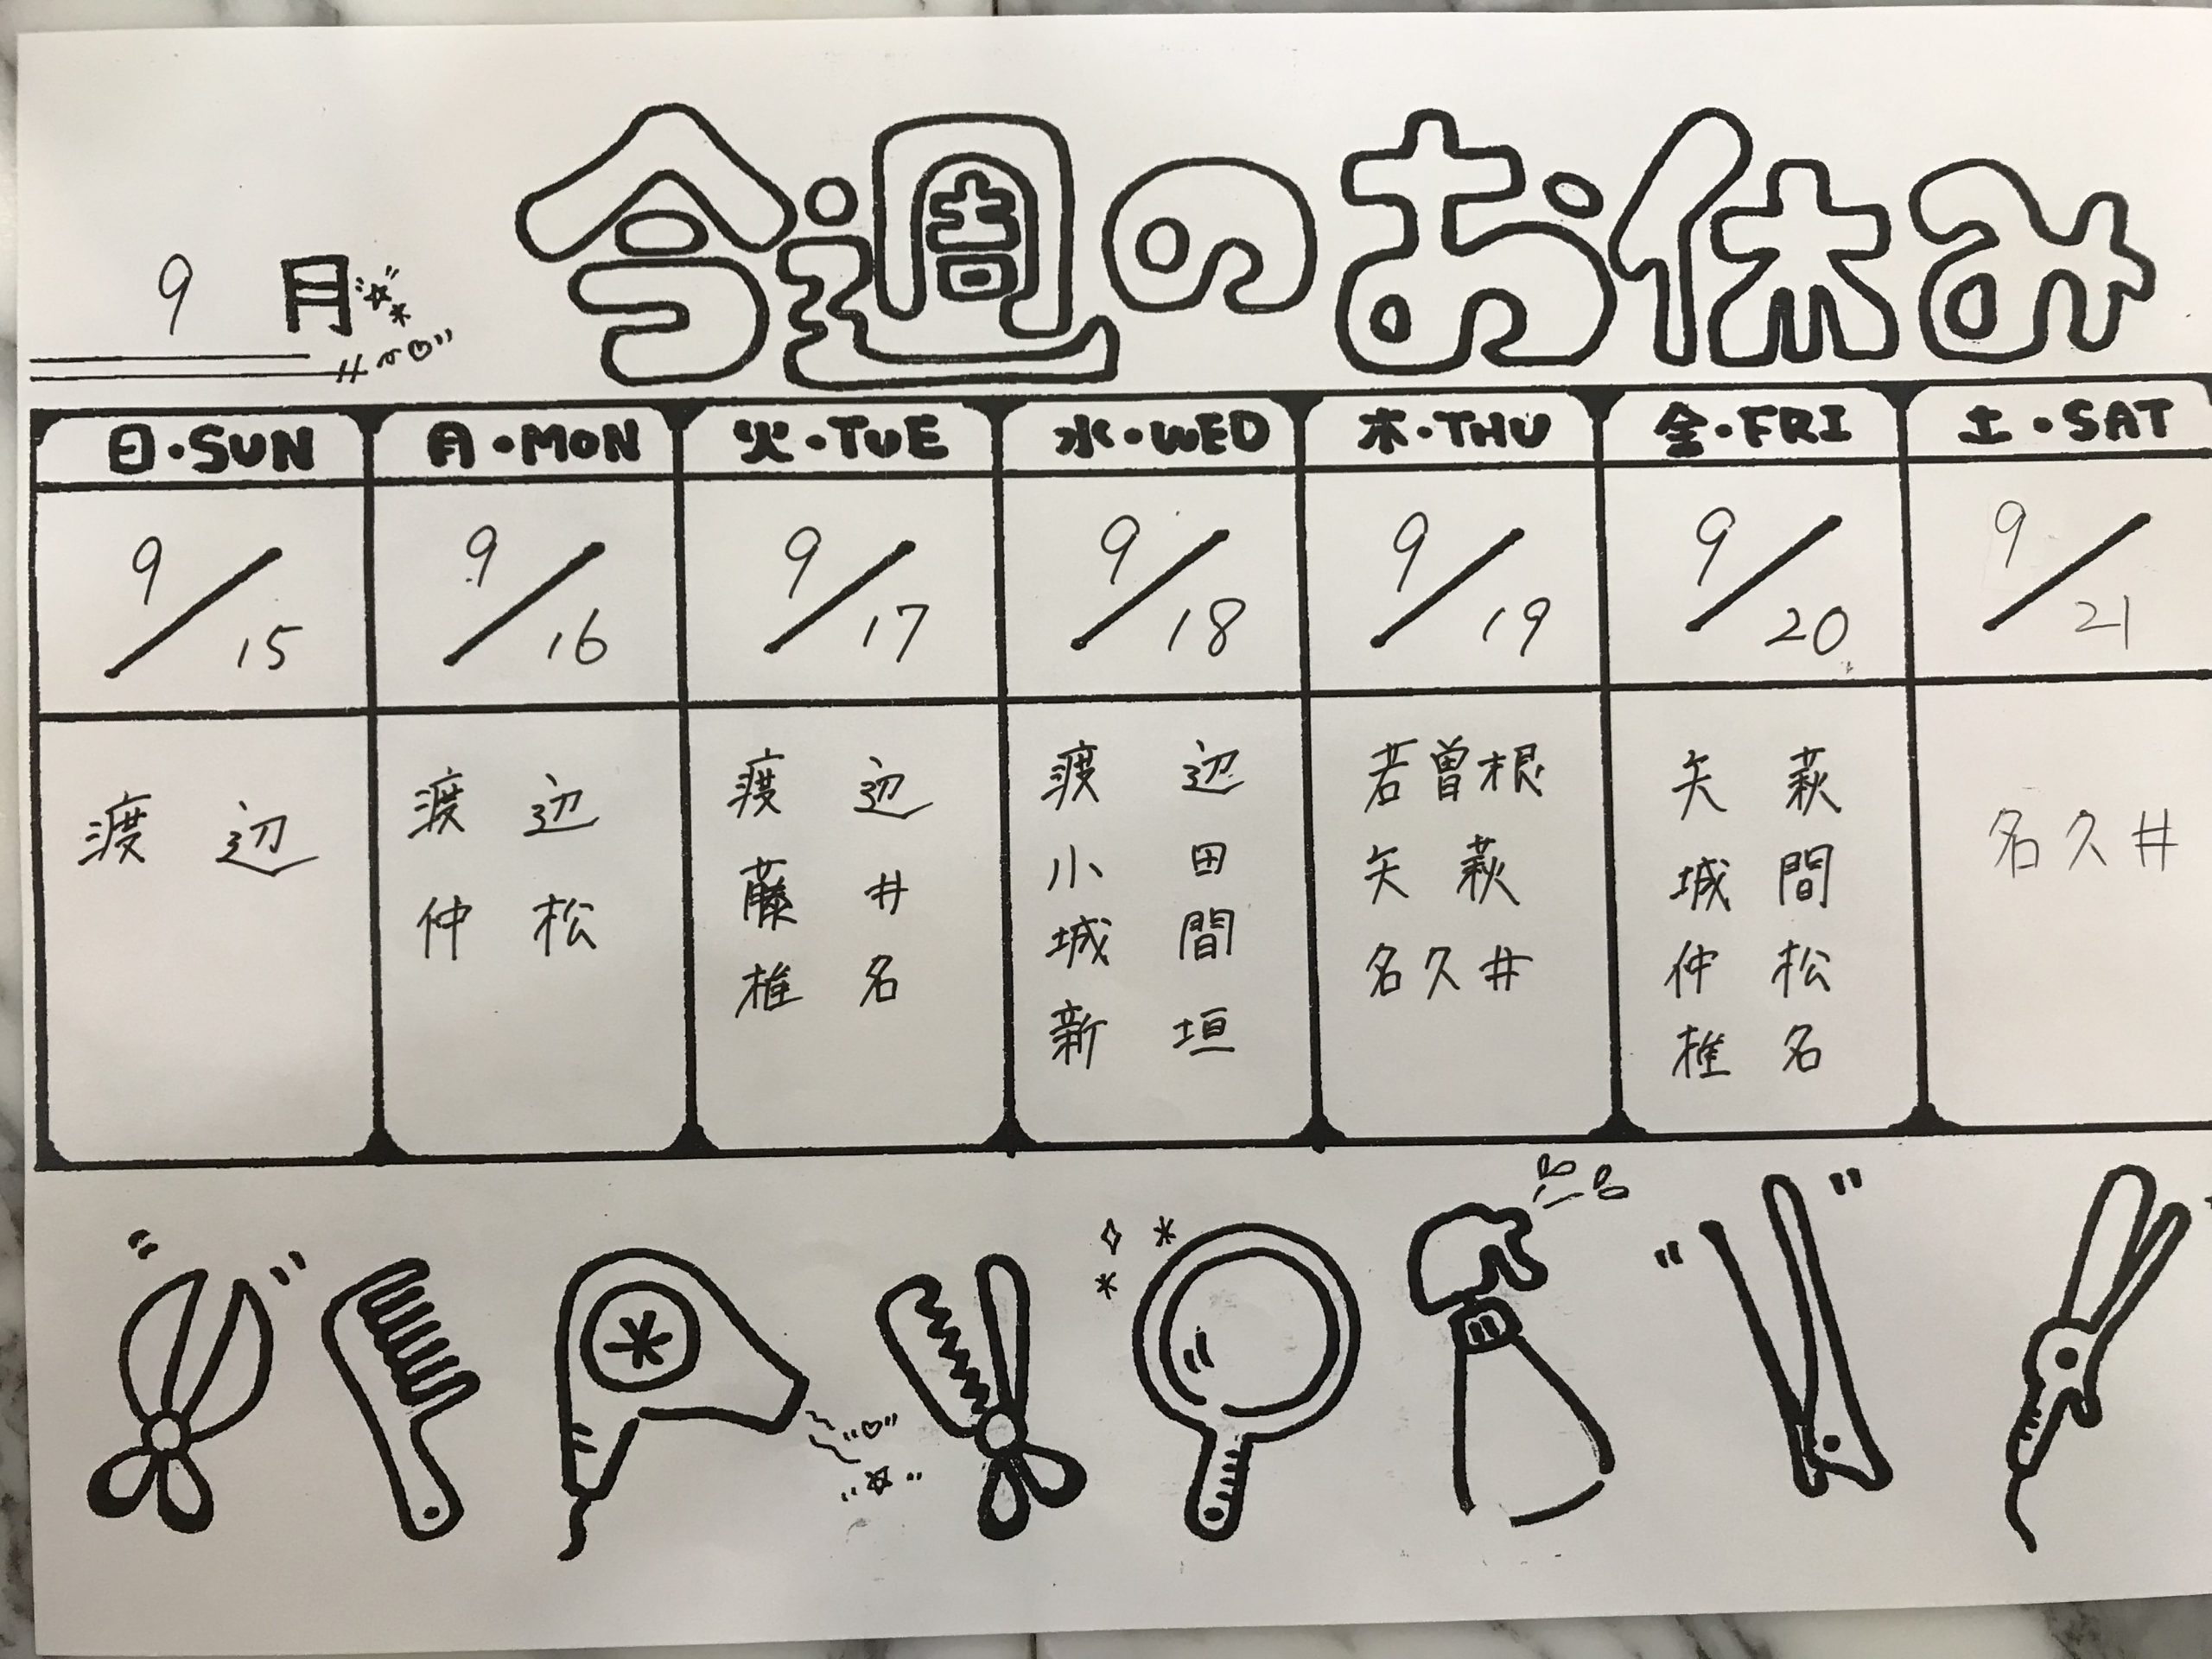 9月
今週のお休み
日・SUN 月・MON 火・TUE 水・WED 木・THU 金・FRI 土・SAT
9/15 9/16 9/17 9/18 9/19 9/20 9/21
渡辺
渡辺
仲松
渡辺
藤井
椎名
渡辺
小田
城間
新垣
若曽根
矢萩
名久井
矢萩
城間
仲松
椎名
名久井